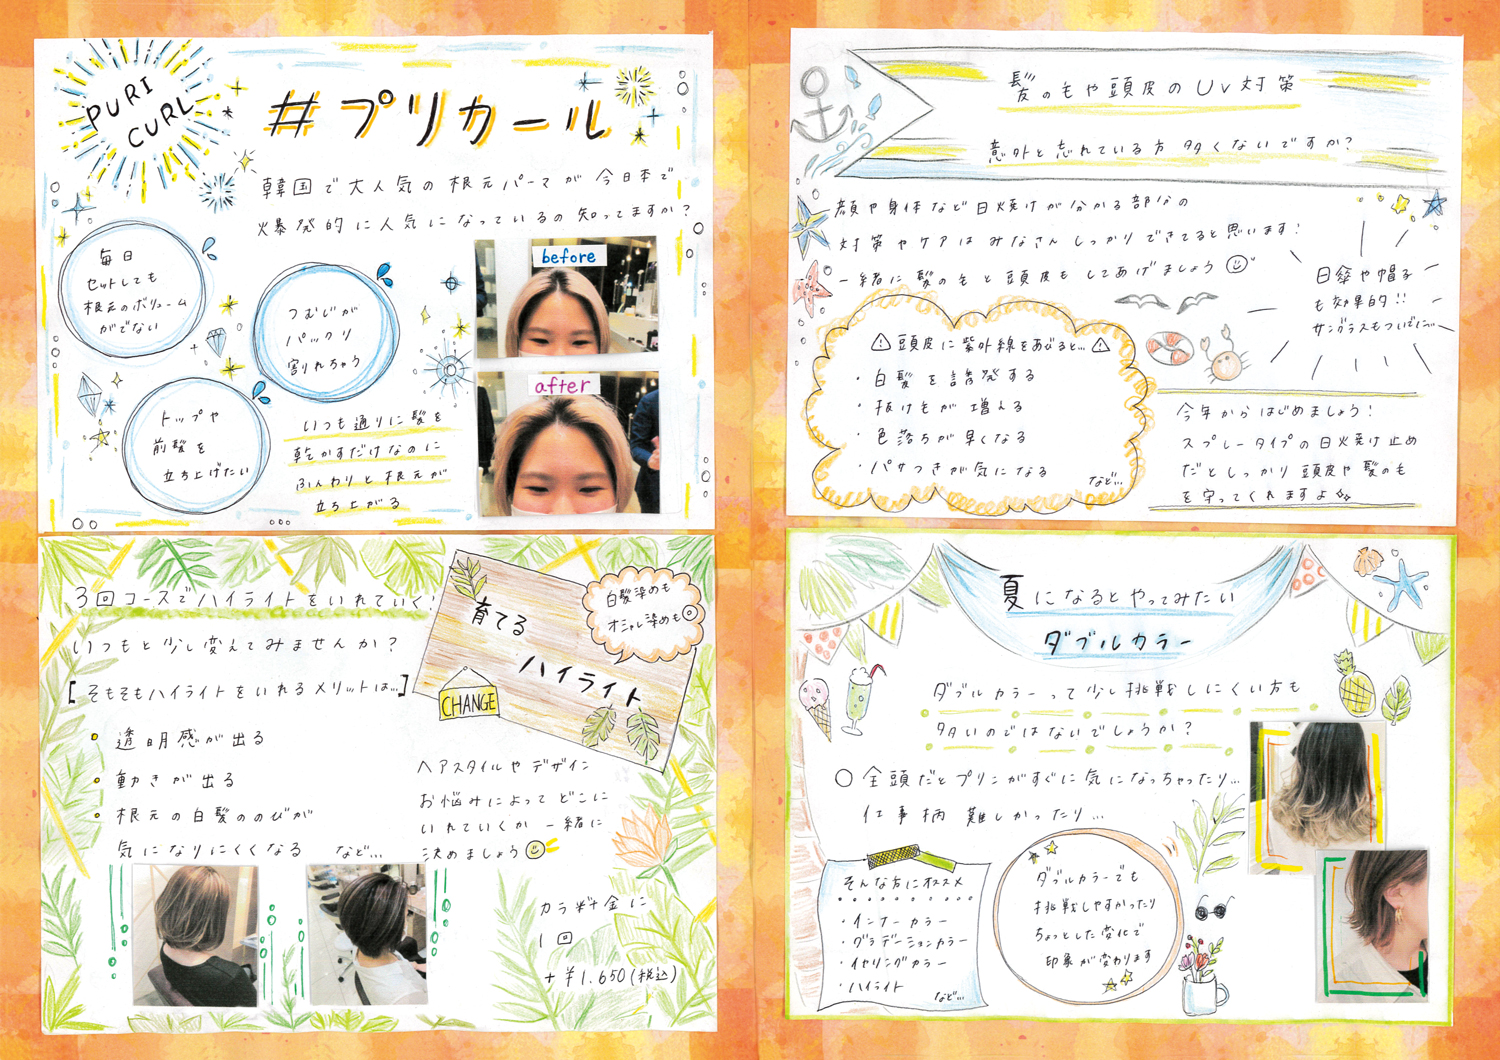 PURI
CURL
#プリカール
韓国で大人気の根元パーマが今日本で
爆発的に人気になっているの知ってますか?
毎日
セットしても
根元のボリューム
がでない
つむじが
パックリ
割れちゃう
トップや
前髪を
立ち上げたい
いつも通りに髪を
乾かすだけなのに
ふんわりと根元が
立ち上がる
before
after
髪のもや頭皮のUV対策
意外と忘れている方多くないですか?
顔や身体など日焼けが分かる部分の
対策やケアはみなさんしっかりできてると思います!
一緒に髪のもと頭皮もしてあげましょう
日傘や帽子
も効果的!!
サングラスもついでに…
⚠頭皮に紫外線をあびると…⚠
・白髪を誘発する
・抜け毛が増える
・色落ちが早くなる
・パサつきが気になる
など…
今年からはじめましょう!
スプレータイプの日焼け止め
だとしっかり頭皮や髪のも
を守ってくれますよ
3回コースでハイライトをいれていく!
いつもと少し変えてみませんか?
[そもそもハイライトをいれるメリットは…]
透明感が出る
動きが出る
根元の白髪ののびが
気になりにくくなる など…
育てる
ハイライト
CHANGE
白髪染めも
オシャレ染めも◎
ヘアスタイルやデザイン
お悩みによってどこに
いれていくか一緒に
決めましょう
カラー料金に
1回
+¥1.650(税込)
夏になるとやってみたい
ダブルカラー
ダブルカラーって少し挑戦しにくい方も
多いのではないでしょうか?
○全頭だとプリンがすぐに気になっちゃったり…
仕事柄難しかったり…
そんな方にオススメ
・インナーカラー
・グラデーションカラー
・イヤリングカラー
・ハイライト
など…
ダブルカラーでも
挑戦しやすかったり
ちょっとした変化で
印象が変わります